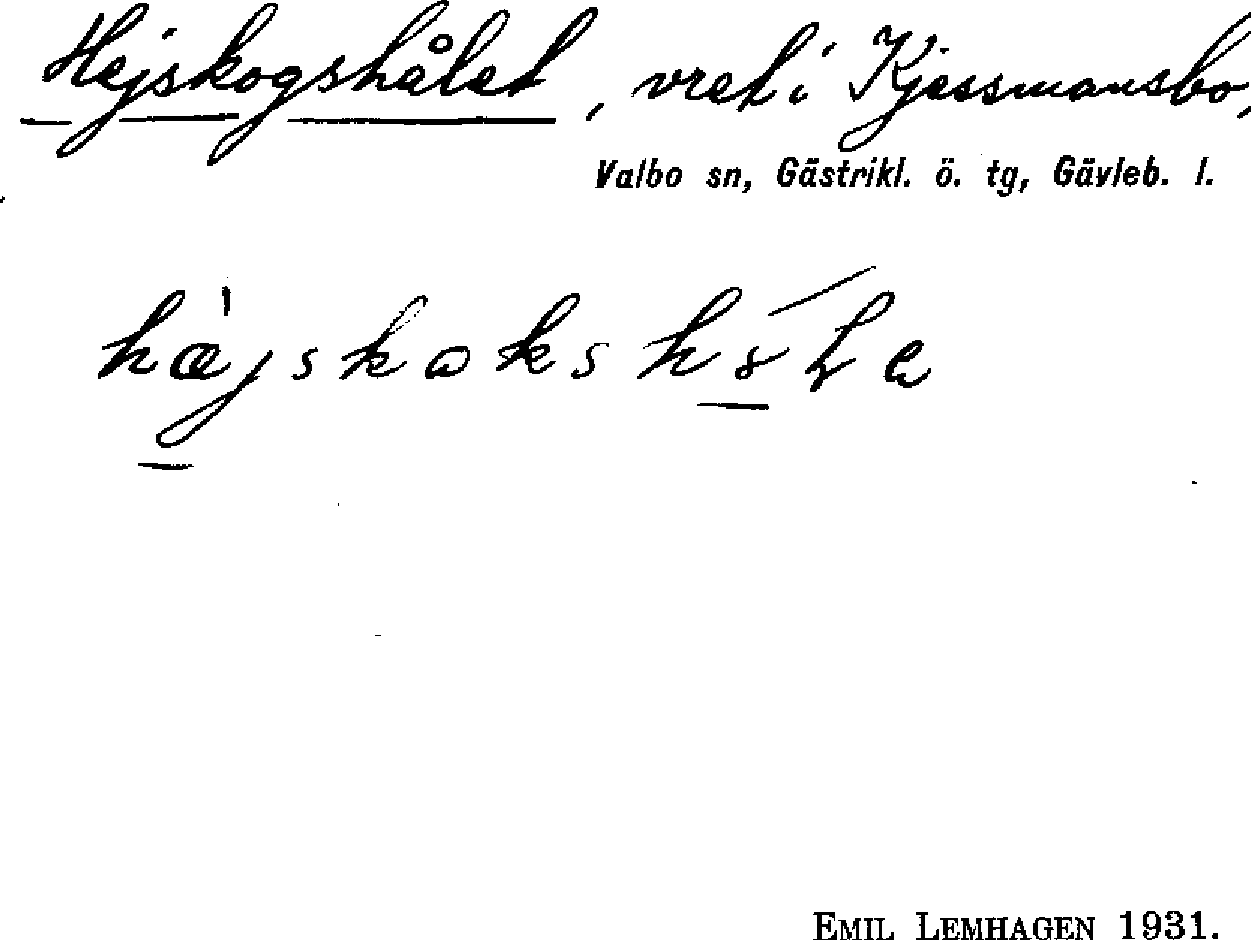 Hejskogshålet, vret i Kjessmansbo,
Valbo sn, Gästrikl. ö. tg, Gävleb. l.
hæ̀jskoksh
EMIL LEMHAGEN 1931.